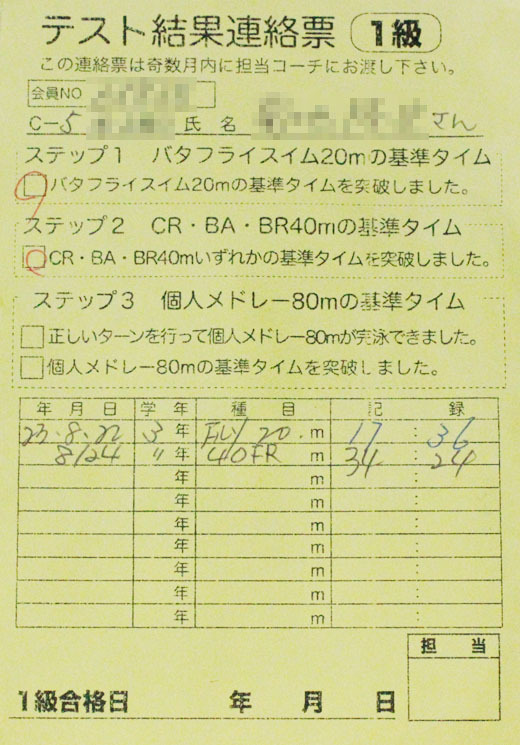 テスト結果連絡票 1級
この連絡票は奇数月内に担当コーチにお渡し下さい。
会員NO
C-5 氏名 さん
ステップ1 バタフライスイム20mの基準タイム
バタフライスイム20mの基準タイムを突破しました。
ステップ2 CR・BA・BR40mの基準タイム
CR・BA・BR40mいずれかの基準タイムを突破しました。
ステップ3 個人メドレー80mの基準タイム
正しいターンを行って個人メドレー80mが完泳できました。
個人メドレー80mの基準タイムを突破しました。
年月日 学年 種目 記録
23.8.22 3年 FLY 20.m 17:36
8/24 〃年 40FR m 34:24
年 m :
年 m
年 m
年 m
年 m
年 m
年 m
担当
1級合格日 年 月 日